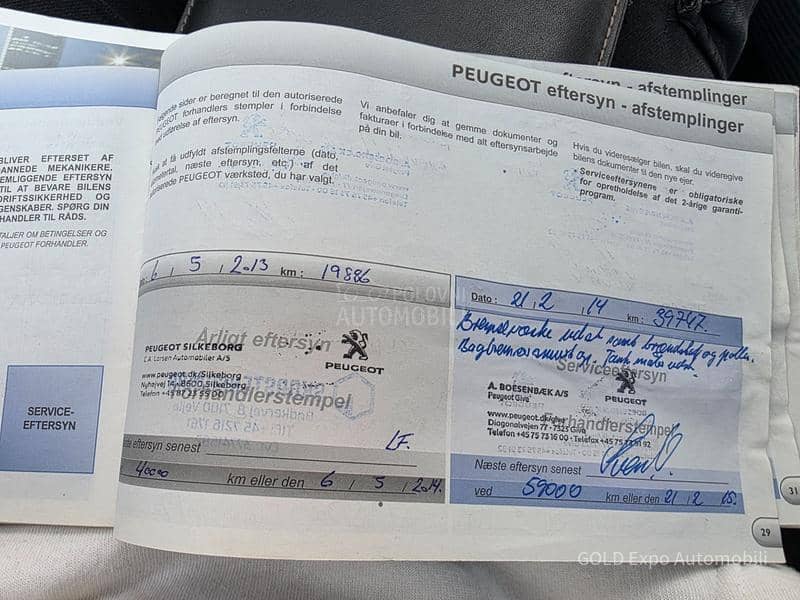 eftersyn - afstemplinger
PEUGEOT eftersyn - afstemplinger
sider er beregnet til den autoriserede
PEUGEOT forhandlers stempler i forbindelse
af eftersyn.
at få udfyldt afstemplingsfelterne (dato,
næste eftersyn, etc.) af det
PEUGEOT værksted, du har valgt.
Vi anbefaler dig at gemme dokumenter og
fakturaer i forbindelse med alt eftersynsarbejde
på din bil.
Hvis du videresælger bilen, skal du videregive
bilens dokumenter til den nye ejer.
• Serviceeftersynene er obligatoriske
for opretholdelse af det 2-årige garanti-
program.
BLIVER EFTERSET AF
MEKANIKERE.
EFTERSYN
TIL AT BEVARE BILENS
DRIFTSSIKKERHED OG
SPØRG DIN
TIL RÅDS.
OM BETINGELSER OG
PEUGEOT FORHANDLER.
SERVICE-
EFTERSYN
6 / 5 / 2013 km : 19886
Årligt eftersyn
PEUGEOT SILKEBORG
C.A. Larsen Automobiler A/S
PEUGEOT
www.peugeot.dk/Silkeborg
Nyhøjvej 14 · 8600 Silkeborg
forhandlerstempel
eftersyn senest
LF.
40000 km eller den 6 / 5 / 2014.
Dato : 21 / 2 / 14 km : 39747.
Bremsevæske udsk samt
Serviceeftersyn
A. BOESENBÆK A/S
Peugeot Give
PEUGEOT
www.peugeot.dk/give
Diagonalvejen 77 · 7323 Give
Telefon +45 75 73 16 00 · Telefax +45 75 73 51 92
forhandlerstempel
Næste eftersyn senest
ved 59000 km eller den 21 / 2 15.
29
31
POLOVNI
AUTOMOBILI
GOLD Expo Automobili